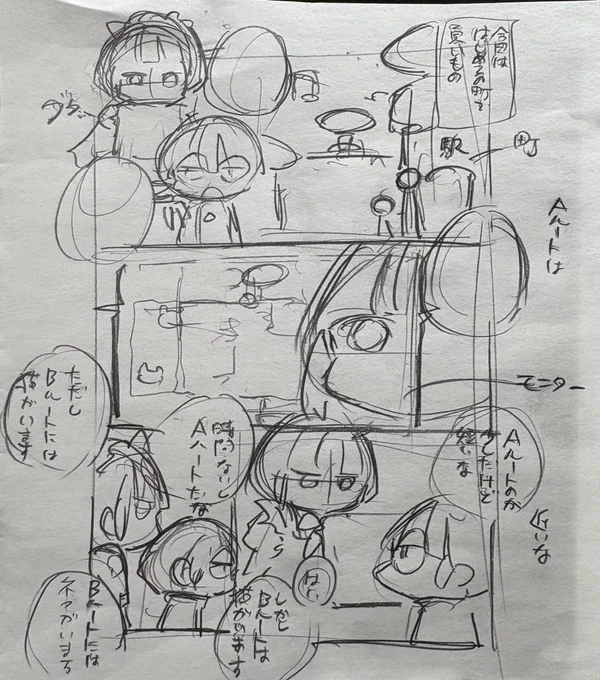 今回は
はじめての町で
買いもの
駅
町
Aルートは
モニター
Aルートのが
少しだけど
近いな
時間ないし
Aルートだな
ただし
Bルートには
猫がいます
はい
しかし
Bルートは
猫がいます
Bルートには
ネコがいする